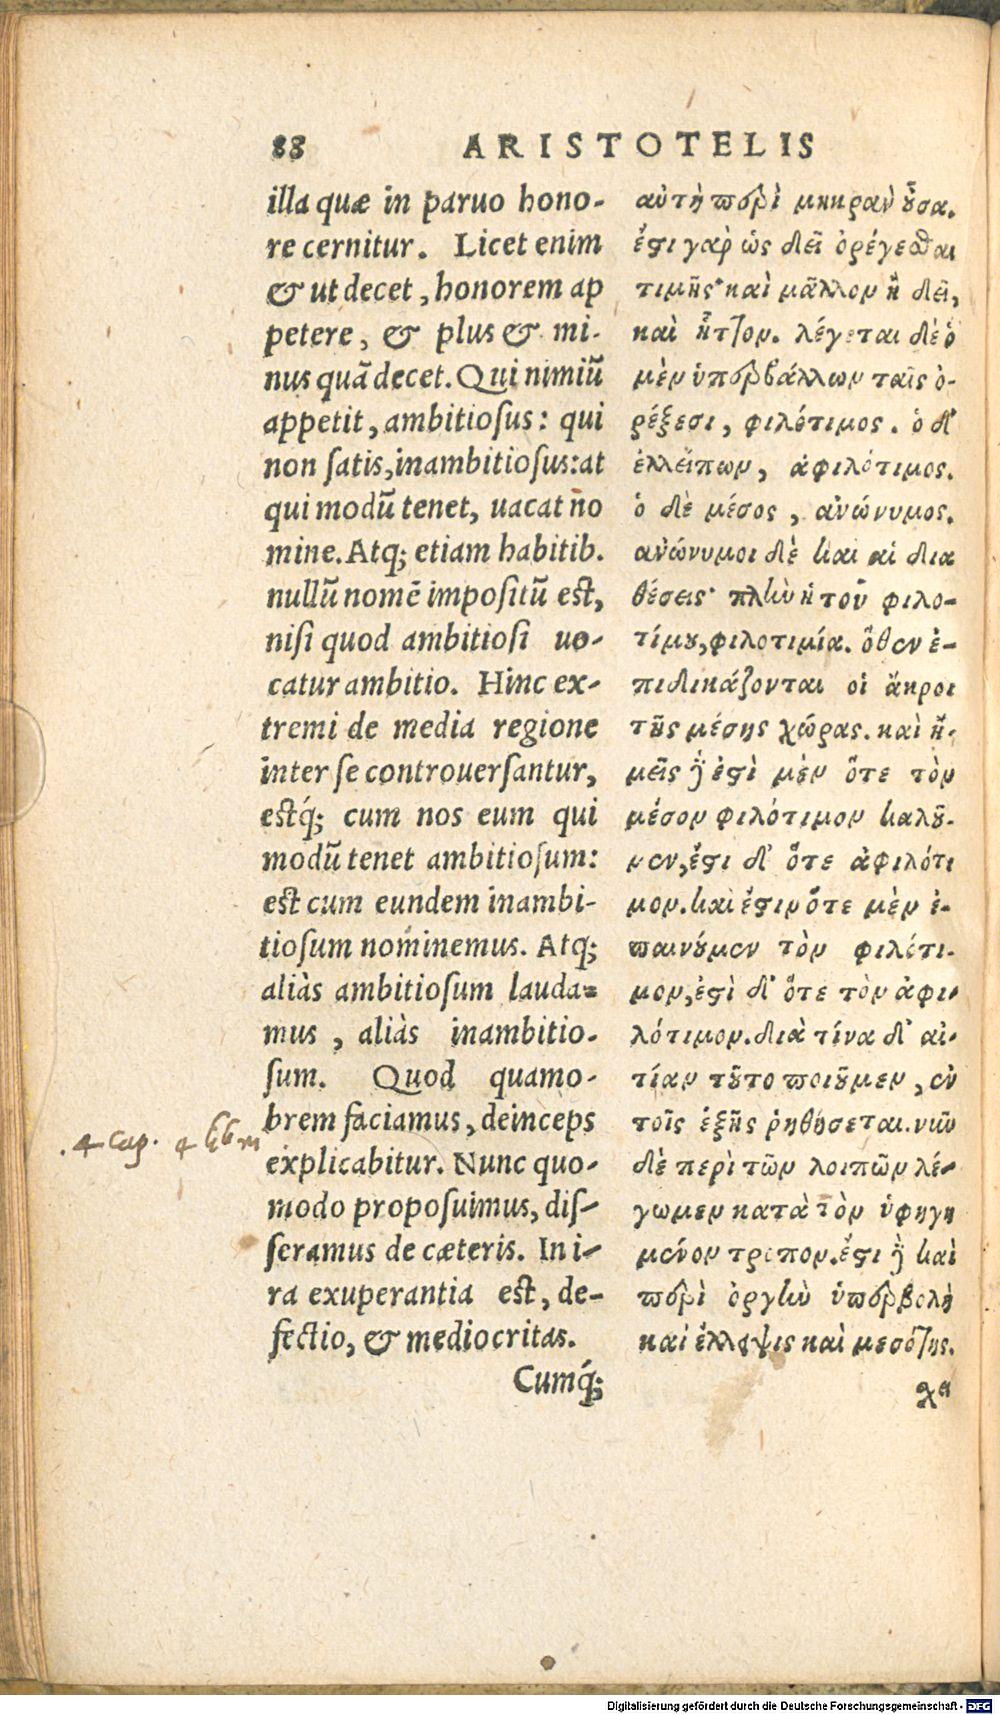 88 ARISTOTELIS
illa quæ in paruo hono-
re cernitur. Licet enim
& ut decet, honorem ap
petere, & plus & mi-
nus quã decet. Qui nimiũ
appetit, ambitiosus: qui
non satis, inambitiosus: at
qui modũ tenet, uacat ño
mine. Atq; etiam habitib.
nullũ nomẽ impositũ est,
nisi quod ambitiosi uo-
catur ambitio. Hinc ex-
tremi de media regione
inter se controuersantur,
estq́; cum nos eum qui
modũ tenet ambitiosum:
est cum eundem inambi-
tiosum nominemus. Atq;
aliàs ambitiosum lauda-
mus, aliàs inambitio-
sum. Quod quamo-
brem faciamus, deinceps
explicabitur. Nunc quo-
modo proposuimus, dis-
seramus de cæteris. In i-
ra exuperantia est, de-
fectio, & mediocritas.
Cumq́;
αὐτὴ περὶ μικρὰν οὖσα.
ἔστι γὰρ ὡς δεῖ ὀρέγεσθαι
τιμῆς· καὶ μᾶλλον ἢ δεῖ,
καὶ ἧττον. λέγεται δὲ ὁ
μὲν ὑπερβάλλων ταῖς ὀ-
ρέξεσι, φιλότιμος. ὁ δ'
ἐλλείπων, ἀφιλότιμος.
ὁ δὲ μέσος, ἀνώνυμος.
ἀνώνυμοι δὲ καὶ αἱ δια
θέσεις· πλὴν ἡ τοῦ φιλο-
τίμου, φιλοτιμία. ὅθεν ἐ-
πιδικάζονται οἱ ἄκροι
τῆς μέσης χώρας. καὶ ἡ-
μεῖς δὲ ἐστὶ μὲν ὅτε τὸν
μέσον φιλότιμον καλοῦ-
μεν, ἔστι δ' ὅτε ἀφιλότι
μον. καὶ ἔστιν ὅτε μὲν ἐ-
παινοῦμεν τὸν φιλότι-
μον, ἐστὶ δ' ὅτε τὸν ἀφι-
λότιμον. διὰ τίνα δ' αἰ-
τίαν τοῦτο ποιοῦμεν, ἐν
τοῖς ἑξῆς ῥηθήσεται. νῦν
δὲ περὶ τῶν λοιπῶν λέ-
γωμεν κατὰ τὸν ὑφηγη
μένον τρόπον. ἔστι δὲ καὶ
περὶ ὀργὴν ὑπερβολὴ
καὶ ἔλλειψις καὶ μεσότης.
χε
. 4 cap. 4 lib
Digitalisierung gefördert durch die Deutsche Forschungsgemeinschaft - DFG